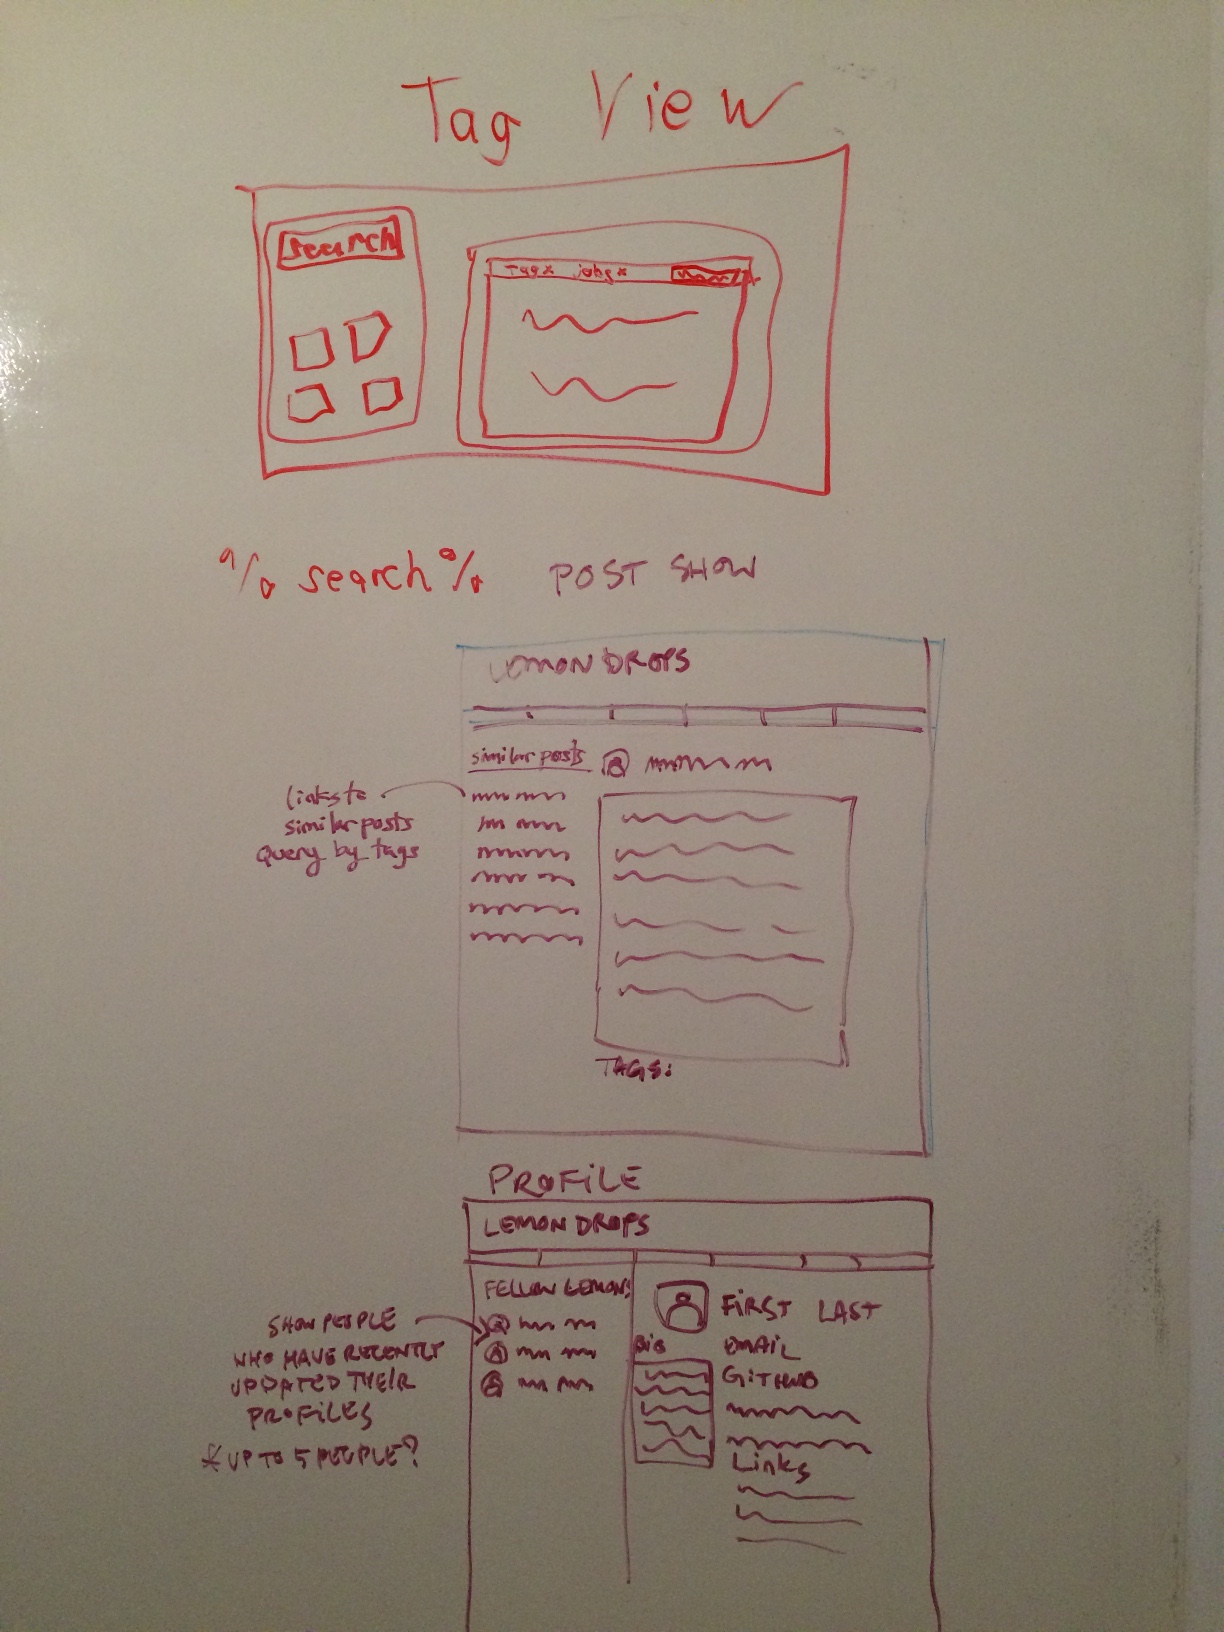 Tag View
search
Tag x jobs x
% search %
POST SHOW
LEMON DROPS
similar posts
links to
similar posts
query by tags
TAGS:
PROFILE
LEMON DROPS
FELLOW LEMONS
SHOW PEOPLE
WHO HAVE RECENTLY
UPDATED THEIR
PROFILES
* UP TO 5 PEOPLE?
FIRST LAST
BIO
EMAIL
GITHUB
Links